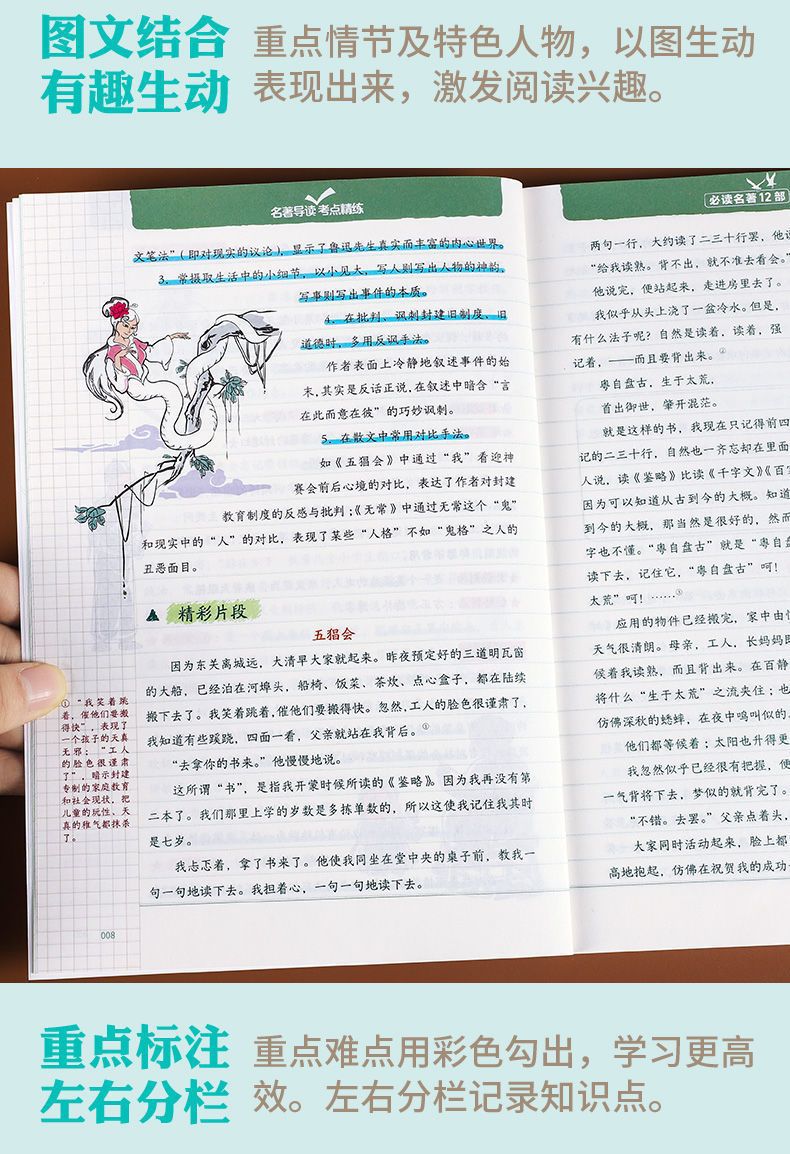 图文结合
有趣生动
重点情节及特色人物，以图生动
表现出来，激发阅读兴趣。
名著导读 考点精练
文笔法”(即对现实的议论)，显示了鲁迅先生真实而丰富的内心世界。
3．常摄取生活中的小细节，以小见大，写人则写出人物的神韵，
写事则写出事件的本质。
4．在批判、讽刺封建旧制度、旧
道德时，多用反讽手法。
作者表面上冷静地叙述事件的始
末，其实是反话正说，在叙述中暗含“言
在此而意在彼”的巧妙讽刺。
5．在散文中常用对比手法。
如《五猖会》中通过“我”看迎神
赛会前后心境的对比，表达了作者对封建
教育制度的反感与批判；《无常》中通过无常这个“鬼”
和现实中的“人”的对比，表现了某些“人格”不如“鬼格”之人的
丑恶面目。
精彩片段
五猖会
因为东关离城远，大清早大家就起来。昨夜预定好的三道明瓦窗
的大船，已经泊在河埠头，船椅、饭菜、茶炊、点心盒子，都在陆续
搬下去了。我笑着跳着，催他们要搬得快。忽然，工人的脸色很谨肃了，
我知道有些蹊跷，四面一看，父亲就站在我背后。①
“去拿你的书来。”他慢慢地说。
这所谓“书”，是指我开蒙时候所读的《鉴略》。因为我再没有第
二本了。我们那里上学的岁数是多拣单数的，所以这使我记住我其时
是七岁。
我忐忑着，拿了书来了。他使我同坐在堂中央的桌子前，教我一
句一句地读下去。我担着心，一句一句地读下去。
①“我笑着跳
着，催他们要搬
得快”，表现了
一个孩子的天真
无邪；“工人
的脸色很谨肃
了”，暗示封建
专制的家庭教育
和社会现状，把
儿童的玩性、天
真的稚气都抹杀
了。
008
必读名著12部
两句一行，大约读了二三十行罢，他说
“给我读熟。背不出，就不准去看会。”
他说完，便站起来，走进房里去了。
我似乎从头上浇了一盆冷水。但是，
有什么法子呢？自然是读着，读着，强
记着，——而且要背出来。②
粤自盘古，生于太荒，
首出御世，肇开混茫。
就是这样的书，我现在只记得前四
记的二三十行，自然也一齐忘却在里面
人说，读《鉴略》比读《千字文》《百
因为可以知道从古到今的大概。知道
到今的大概，那当然是很好的，然而
字也不懂。“粤自盘古”就是“粤自盘
读下去，记住它，“粤自盘古”呵！
太荒”呵！……③
应用的物件已经搬完，家中由忙
天气很清朗。母亲，工人，长妈妈即
候着我读熟，而且背出来。在百静
将什么“生于太荒”之流夹住；也
仿佛深秋的蟋蟀，在夜中鸣叫似的。
他们都等候着；太阳也升得更
我忽然似乎已经很有把握，便
一气背将下去，梦似的就背完了。
“不错。去罢。”父亲点着头，
大家同时活动起来，脸上都
高地抱起，仿佛在祝贺我的成功
重点标注
左右分栏
重点难点用彩色勾出，学习更高
效。左右分栏记录知识点。